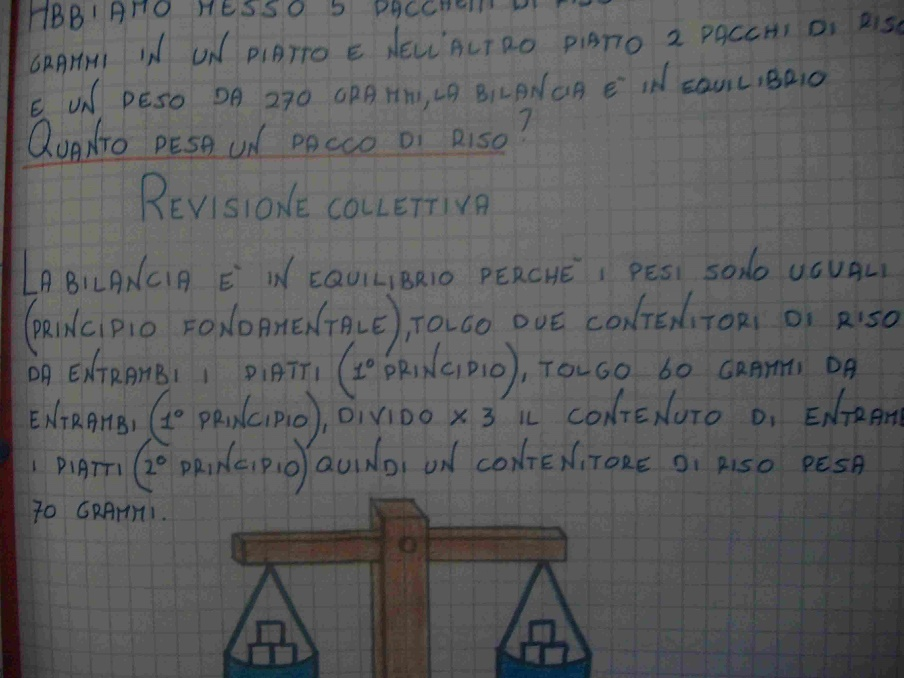 ABBIAMO MESSO 5 PACCHETTI DI RISO
GRAMMI IN UN PIATTO E NELL'ALTRO PIATTO 2 PACCHI DI RISO
E UN PESO DA 270 GRAMMI, LA BILANCIA È IN EQUILIBRIO
QUANTO PESA UN PACCO DI RISO?
REVISIONE COLLETTIVA
LA BILANCIA È IN EQUILIBRIO PERCHÈ I PESI SONO UGUALI
(PRINCIPIO FONDAMENTALE), TOLGO DUE CONTENITORI DI RISO
DA ENTRAMBI I PIATTI (1° PRINCIPIO), TOLGO 60 GRAMMI DA
ENTRAMBI (1° PRINCIPIO), DIVIDO X 3 IL CONTENUTO DI ENTRAMB
I PIATTI (2° PRINCIPIO) QUINDI UN CONTENITORE DI RISO PESA
70 GRAMMI.